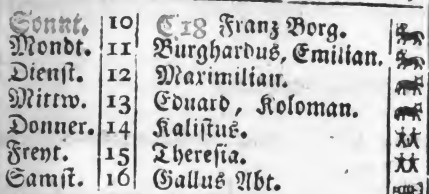 Sonnt. 10 C 18 Franz Borg.
Mondt. 11 Burghardus, Emilian.
Dienst. 12 Maximilian.
Mittw. 13 Eduard, Koloman.
Donner. 14 Kalistus.
Freyt. 15 Theresia.
Samst. 16 Gallus Abt.